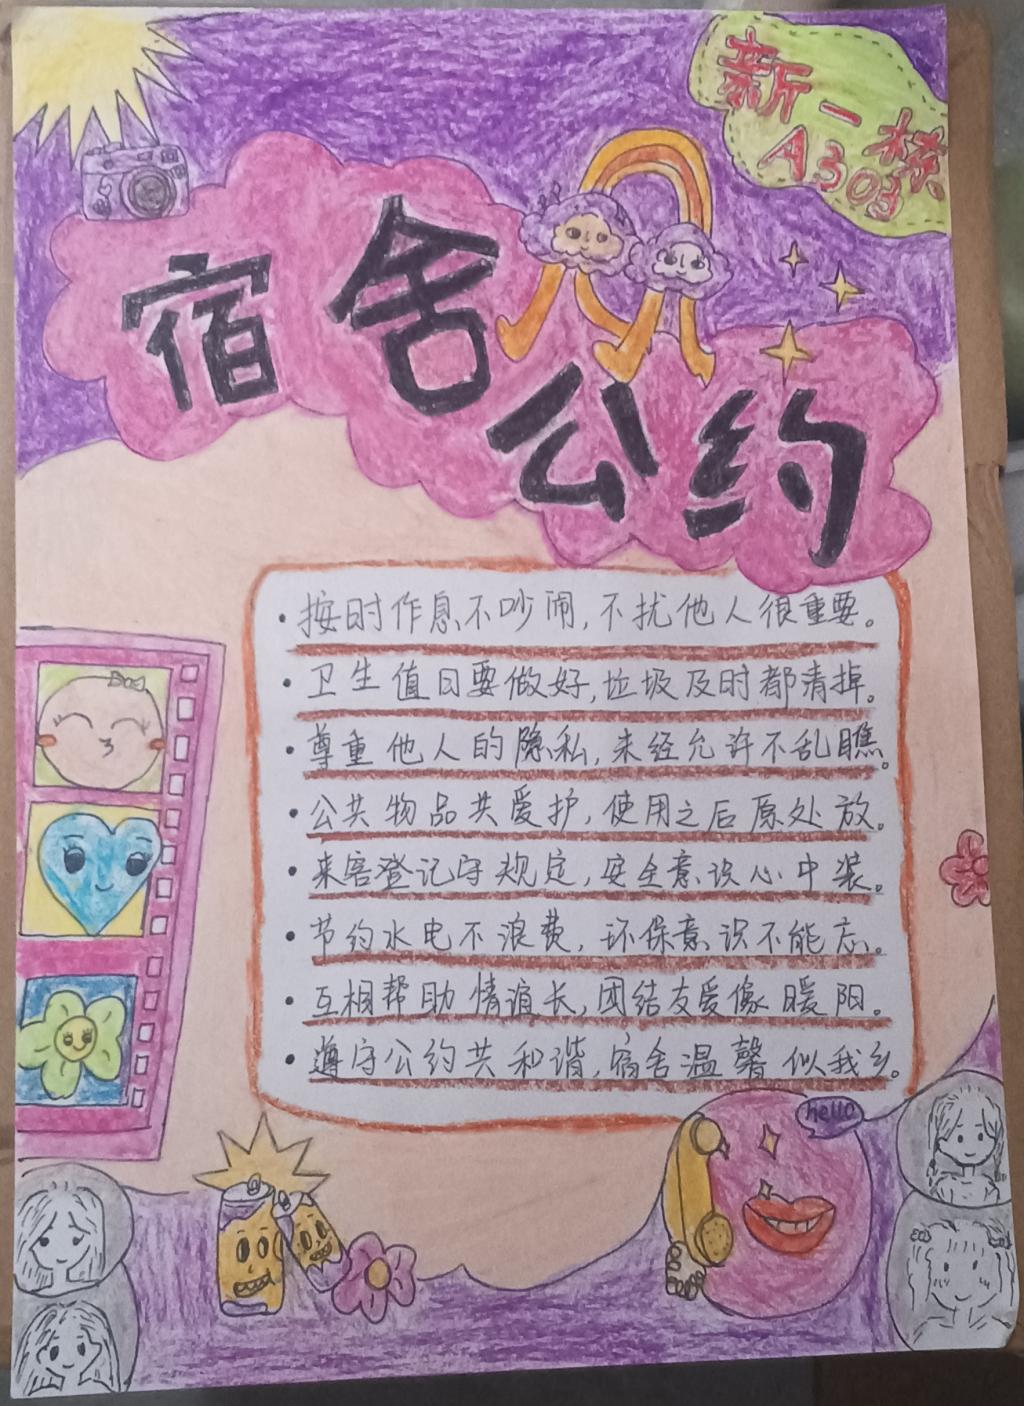 新一栋
A303
宿舍公约
·按时作息不吵闹,不扰他人很重要。
·卫生值日要做好,垃圾及时都清掉。
·尊重他人的隐私,未经允许不乱瞧。
·公共物品共爱护,使用之后原处放。
·来客登记守规定,安全意识心中装。
·节约水电不浪费,环保意识不能忘。
·互相帮助情谊长,团结友爱像暖阳。
·遵守公约共和谐,宿舍温馨似我乡。
hello